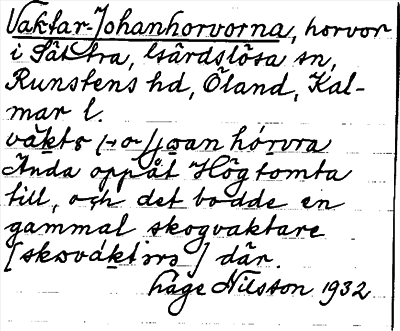 Vaktar-Johanhorvorna, horvor
i Sättra, Gärdslösa sn,
Runstens hd, Öland, Kal-
mar l.
Ända oppåt Högtomta
till, och det bodde en
gammal skogvaktare
där.
Håge Nilsson 1932